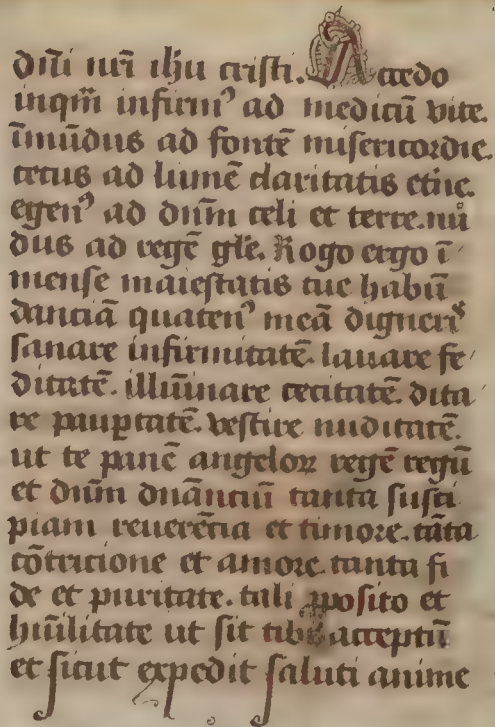 dñi nr̃i ihu cristi. Accedo
inqm̃ infirmꝰ ad medicũ vite.
ĩmũdus ad fontẽ misericordie.
cecus ad lumẽ claritatis et̃ne.
egenꝰ ad dñm celi et terre. nũ
dus ad regẽ gl̃e. Rogo ergo ĩ
mense maiestatis tue habũ
danciã quatenꝰ meã digneris
sanare infirmitatẽ. lauare fe
ditatẽ. illũinare cecitatẽ. dita
re paup̱tatẽ. vestire nuditatẽ.
ut te panẽ angeloꝝ regẽ regũ
et dñm dñãnciũ tanta susci
piam reuerẽcia et timore. tãta
cõtricione et amore. tanta fi
de et puritate. tali ꝓposito et
hũilitate ut sit tibi acceptũ
et sicut expedit saluti anime